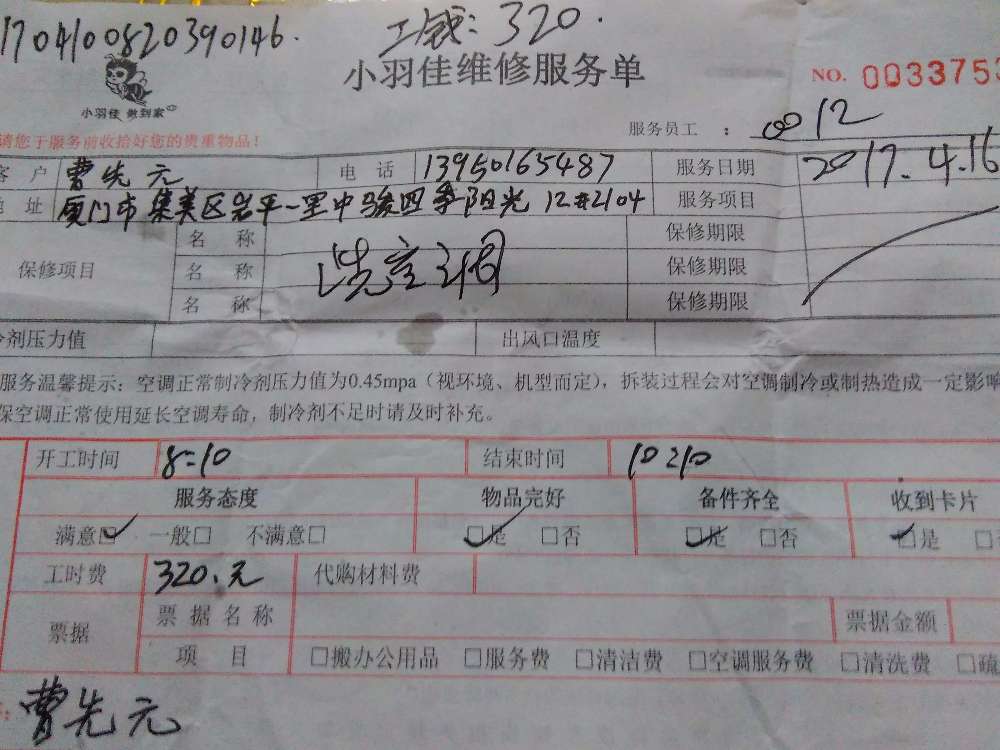 1704100820390146.
工钱:320.
小羽佳 做到家
小羽佳维修服务单
NO. 0033753
请您于服务前收拾好您的贵重物品!
服务员工 : 0012
客 户 曹先元 电 话 13950165487 服务日期 2017.4.16
地 址 厦门市集美区岩平一里中骏四季阳光 12#2104 服务项目
保修项目 名 称 洗空调 保修期限
名 称 保修期限
名 称 保修期限
冷剂压力值 出风口温度
服务温馨提示:空调正常制冷剂压力值为0.45mpa(视环境、机型而定),拆装过程会对空调制冷或制热造成一定影响
保空调正常使用延长空调寿命,制冷剂不足时请及时补充。
开工时间 8:10 结束时间 10:10
服务态度 物品完好 备件齐全 收到卡片
满意☑ 一般□ 不满意□ ☑是 □否 ☑是 □否 ☑是 □
工时费 320.元 代购材料费
票据 票 据 名 称 票据金额
项 目 □搬办公用品 □服务费 □清洁费 □空调服务费 □清洗费 □疏
曹先元